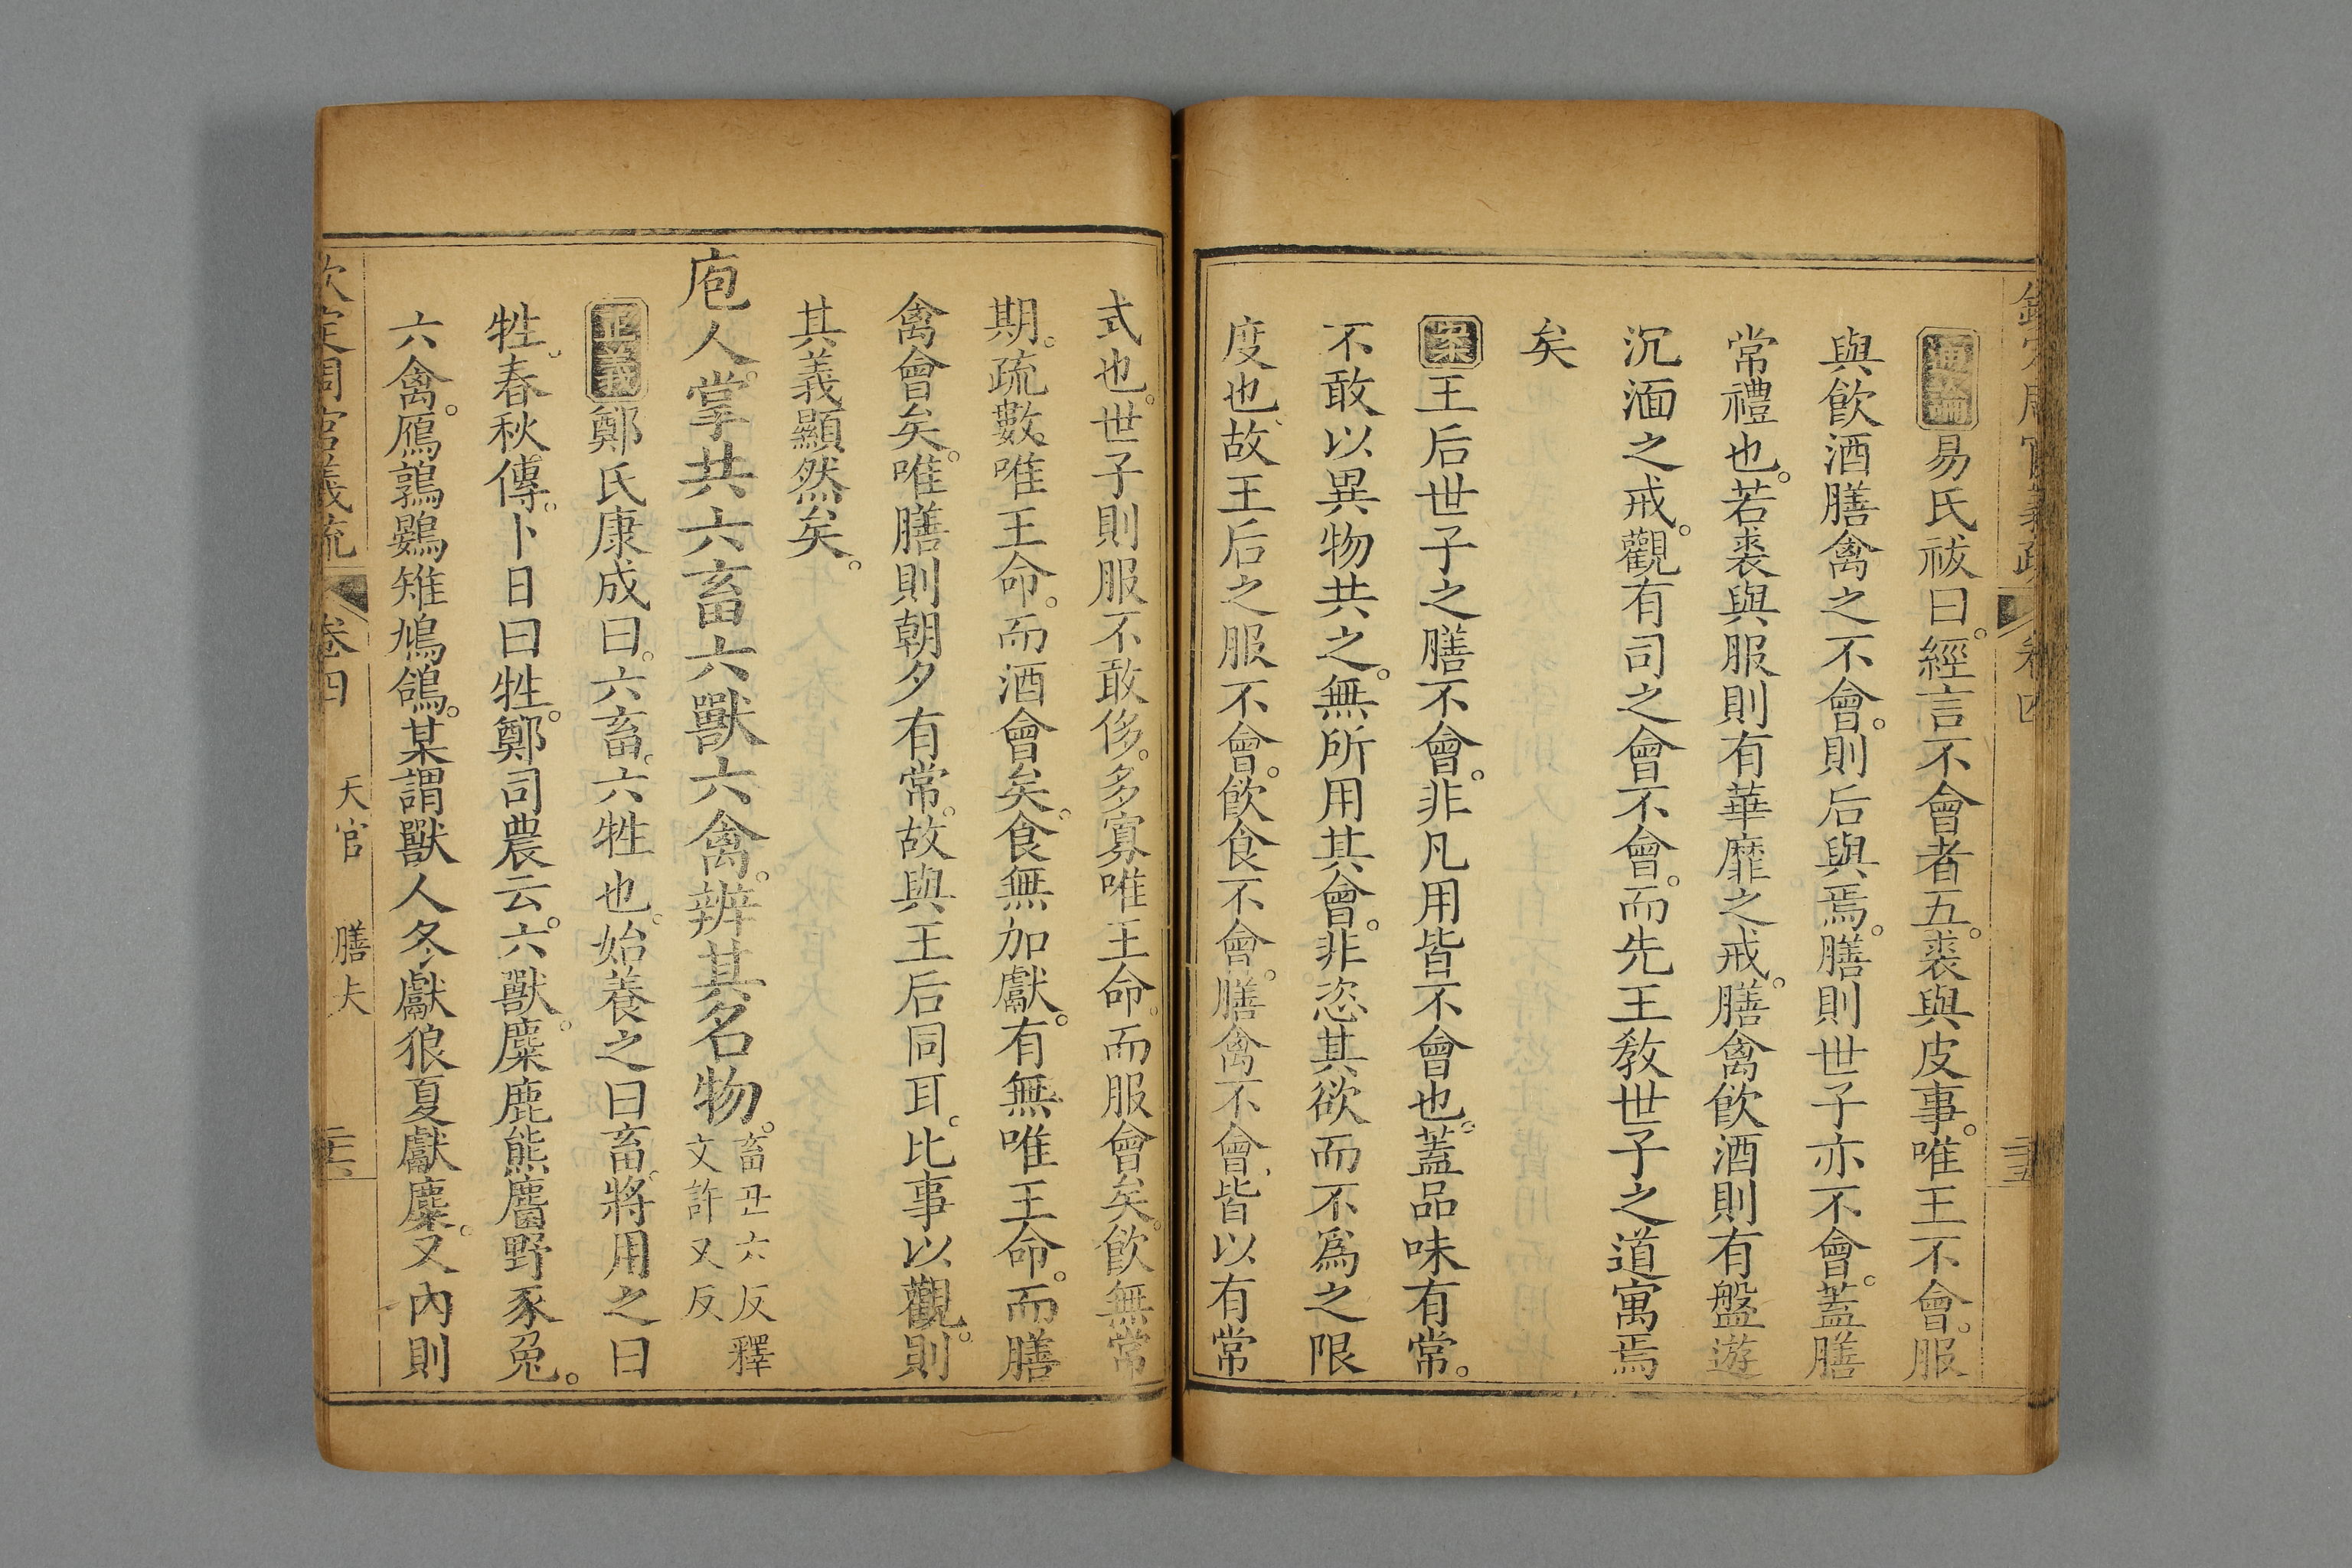 欽定周官義疏 卷四 二十五
通論易氏祓曰。經言不會者五。裘與皮事。唯王不會。服
與飲酒膳禽之不會。則后與焉。膳則世子亦不會。蓋膳
常禮也。若裘與服則有華靡之戒。膳禽飲酒則有盤遊
沉湎之戒。觀有司之會不會。而先王教世子之道寓焉
矣
案王后世子之膳不會。非凡用皆不會也。蓋品味有常。
不敢以異物共之。無所用其會。非恣其欲而不爲之限
度也。故王后之服不會。飲食不會。膳禽不會。皆以有常
式也。世子則服不敢侈。多寡唯王命。而服會矣。飲無常
期。疏數唯王命。而酒會矣。食無加獻。有無唯王命。而膳
禽會矣。唯膳則朝夕有常。故與王后同耳。比事以觀。則
其義顯然矣。
庖人。掌共六畜六獸六禽。辨其名物。
畜丑六反釋
文許又反
正義鄭氏康成曰。六畜。六牲也。始養之曰畜。將用之曰
牲。春秋傳。卜日曰牲。鄭司農云。六獸。麋鹿熊麕野豕兔。
六禽。鴈鶉鷃雉鳩鴿。某謂獸人冬獻狼夏獻麋。又內則
欽定周官義疏 卷四 天官 膳夫 二十六